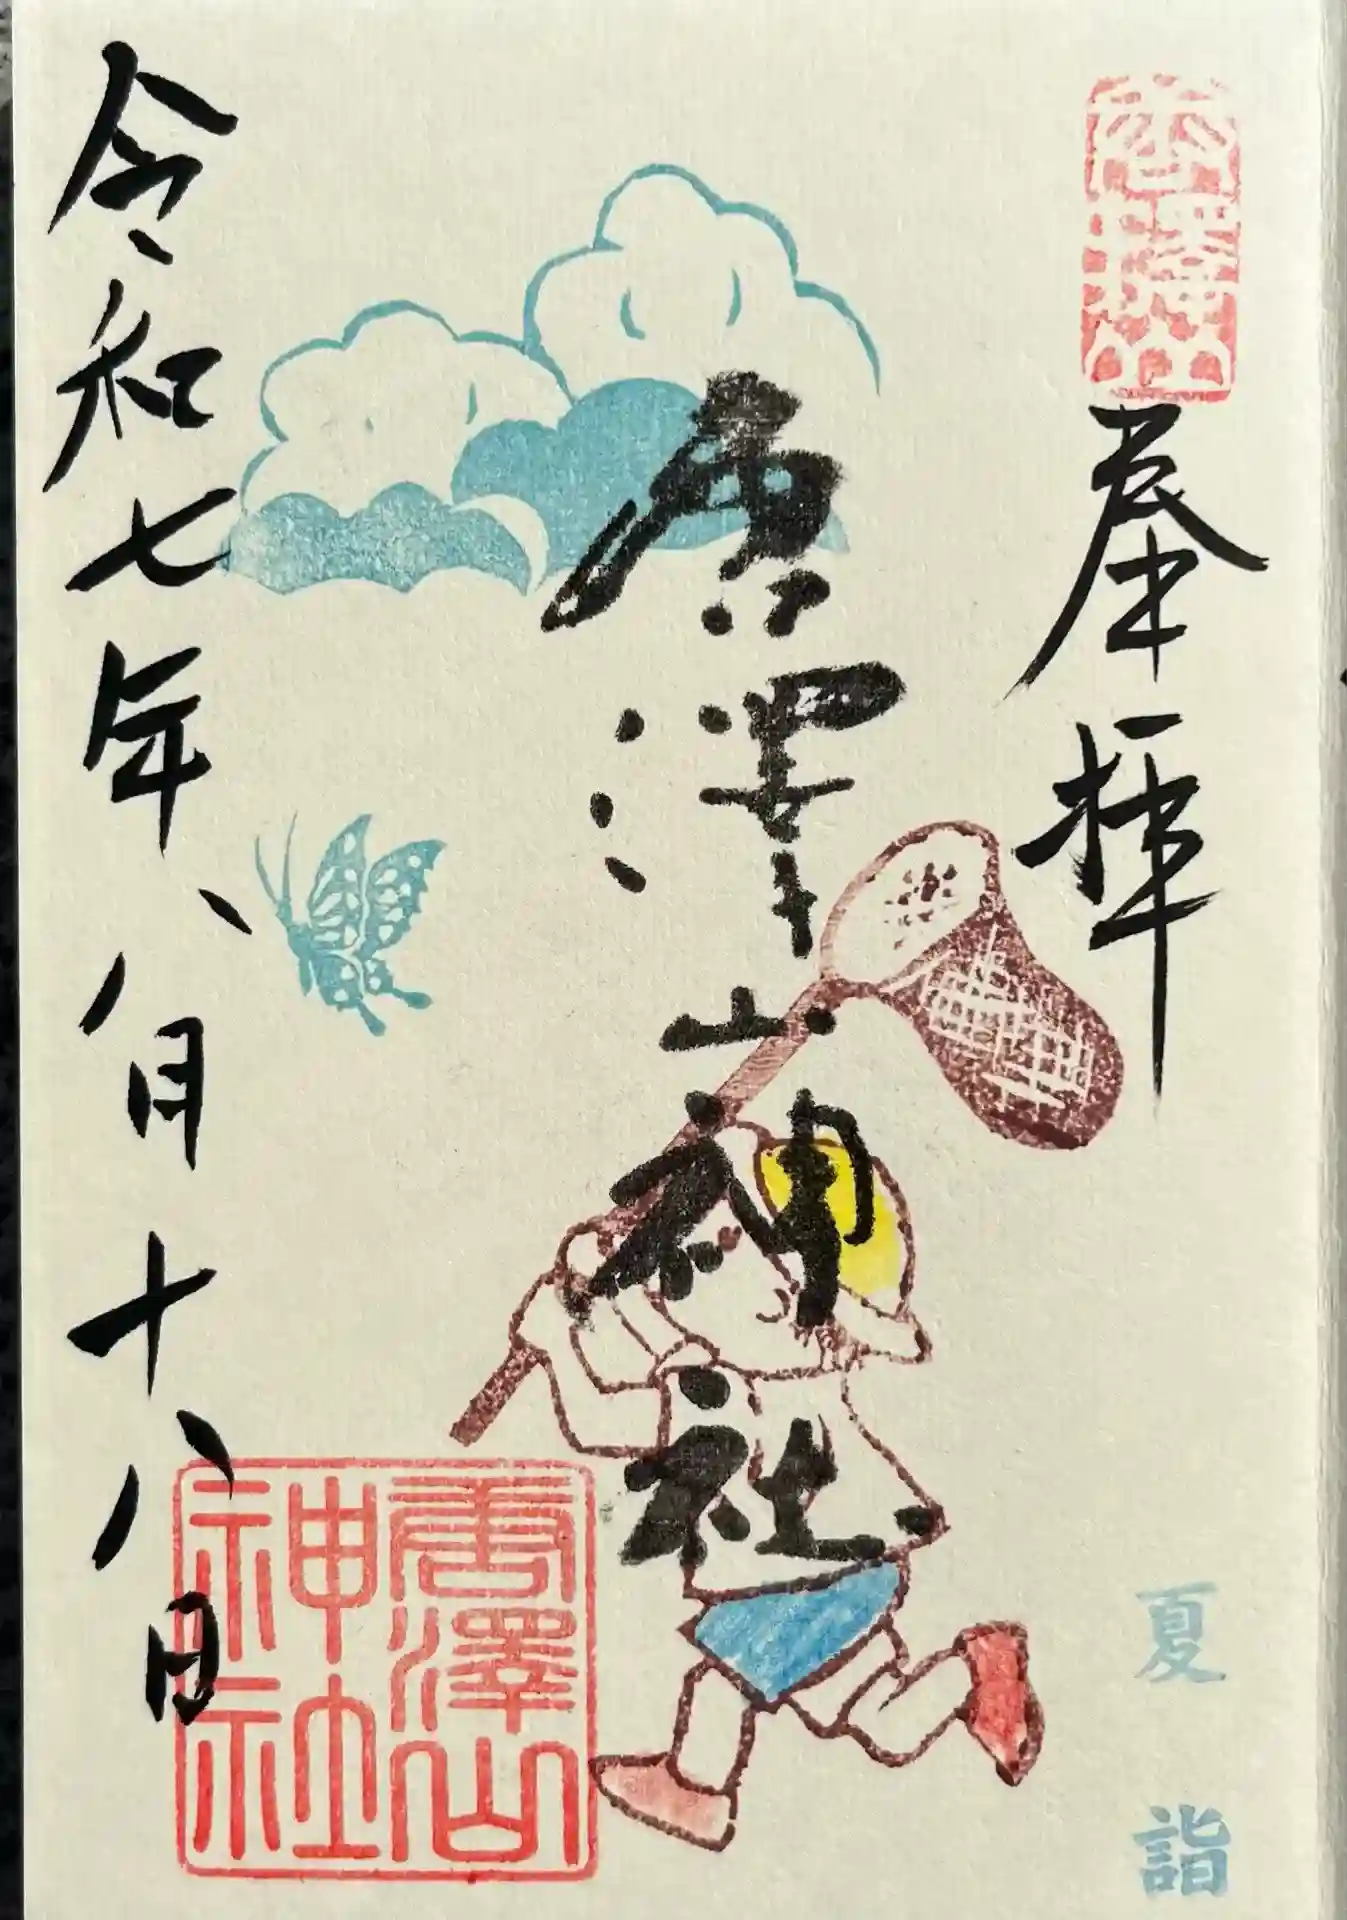 奉拝
唐澤山神社
令和七年八月十八日
唐澤山
神社
夏詣